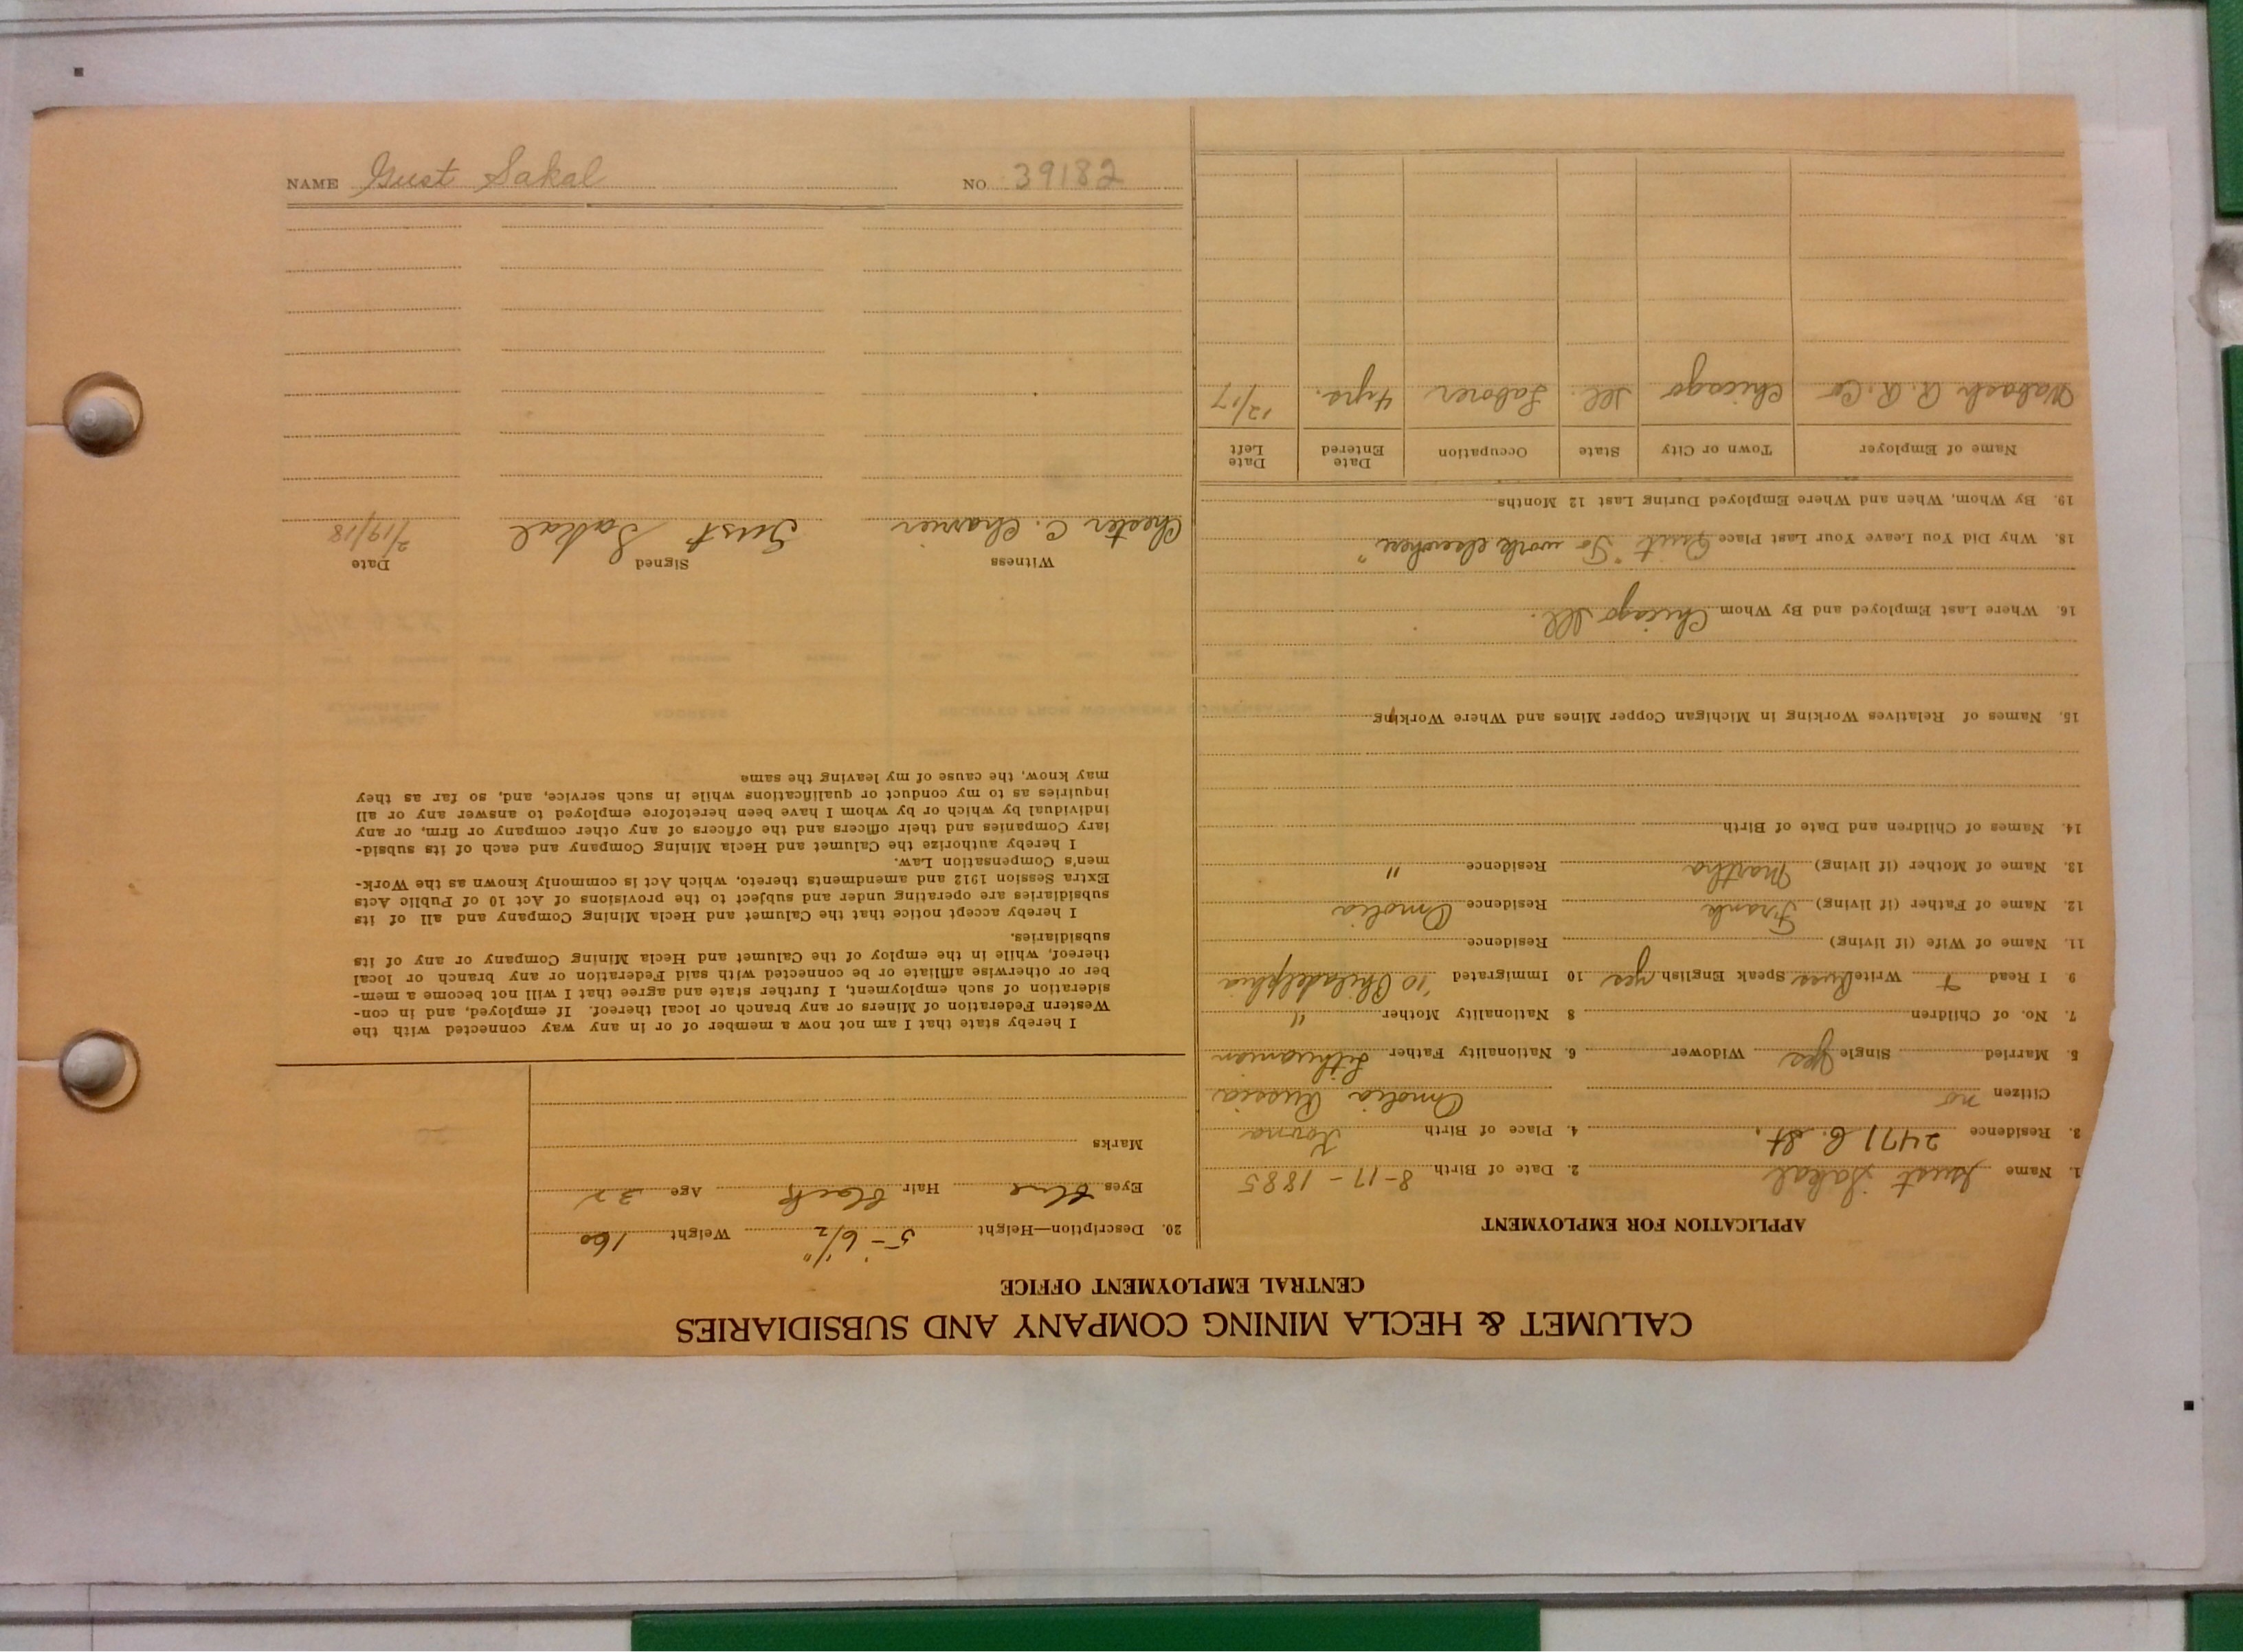 CALUMET & HECLA MINING COMPANY AND SUBSIDIARIES
CENTRAL EMPLOYMENT OFFICE
APPLICATION FOR EMPLOYMENT
1. Name Gust Sakal 2. Date of Birth 8-17-1885
3. Residence 2471 C. St. 4. Place of Birth Kovna
Citizen no Omolia Russia
5. Married Single Yes Widower 6. Nationality Father Lithuanian
7. No. of Children 8 Nationality Mother "
9 I Read + Write Russ Speak English yes 10 Immigrated '10 Philadelphia
11. Name of Wife (if living) Residence
12. Name of Father (if living) Frank Residence Omolia
13. Name of Mother (if living) Martha Residence "
14. Names of Children and Date of Birth
15. Names of Relatives Working in Michigan Copper Mines and Where Working
16. Where Last Employed and By Whom Chicago Ill.
18. Why Did You Leave Your Last Place Quit "To work elsewhere"
19. By Whom, When and Where Employed During Last 12 Months
Name of Employer Town or City State Occupation Date Entered Date Left
Wabash R. R. Co Chicago Ill. Laborer 4 yrs. 12/17
20. Description—Height 5-6 1/2" Weight 160
Eyes blue Hair black Age 32
Marks
I hereby state that I am not now a member of or in any way connected with the
Western Federation of Miners or any branch or local thereof. If employed, and in con-
sideration of such employment, I further state and agree that I will not become a mem-
ber or otherwise affiliate or be connected with said Federation or any branch or local
thereof, while in the employ of the Calumet and Hecla Mining Company or any of its
subsidiaries.
I hereby accept notice that the Calumet and Hecla Mining Company and all of its
subsidiaries are operating under and subject to the provisions of Act 10 of Public Acts
Extra Session 1912 and amendments thereto, which Act is commonly known as the Work-
men's Compensation Law.
I hereby authorize the Calumet and Hecla Mining Company and each of its subsid-
iary Companies and their officers and the officers of any other company or firm, or any
individual by which or by whom I have been heretofore employed to answer any or all
inquiries as to my conduct or qualifications while in such service, and, so far as they
may know, the cause of my leaving the same
Witness Signed Date
Chester C. Charrier Gust Sakal 2/19/18
NAME Gust Sakal NO. 39182